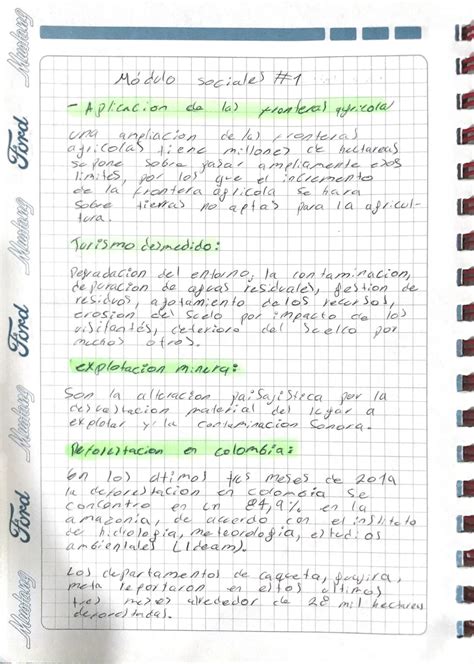 Módulo sociales #1
- Aplicacion de las fronteras agricolas
una ampliacion de las fronteras
agricolas tiene millones de hectareas
se pone sobre pasar ampliamente esos
limites, por los que el incremento
de la frontera agricola se hara
sobre tierras no aptas para la agricul-
tura.
Turismo desmedido:
Degradacion del entorno, la contaminacion,
depuracion de aguas residuales, gestion de
residuos, agotamiento de los recursos,
erosion del suelo por impacto de los
visitantes, deterioro del suelco por
muchos otros.
explotacion minera:
Son la alteracion paisajistica por la
devastacion material del lugar a
explotar y la contaminacion Sonora.
Deforestacion en colombia:
En los ultimos tres meses de 2019
la deforestacion en colombia se
concentro en un 84,9% en la
amazonia, de acuerdo con el instituto
de hidrologia, meteorologia, estudios
ambientales (Ideam).
Los departamentos de caqueta, guajira,
meta reportaron en estos ultimos
tres meses alrededor de 28 mil hectareas
deforestadas.
Mustang
Ford
Mustang
Ford
Mustang
Ford
Mustang
Ford
Mustang